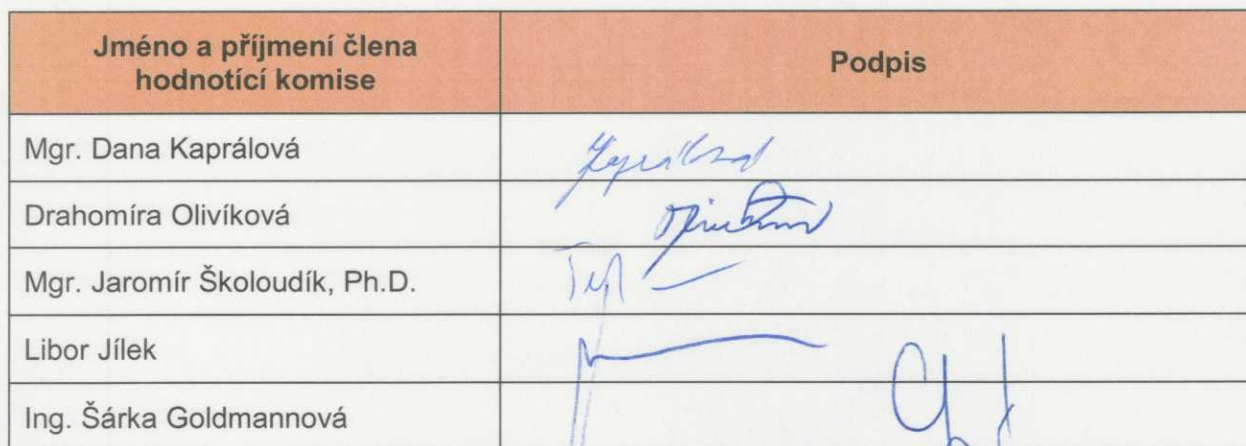 Jméno a příjmení člena
hodnotící komise
Podpis
Mgr. Dana Kaprálová
Drahomíra Olivíková
Mgr. Jaromír Školoudík, Ph.D.
Libor Jílek
Ing. Šárka Goldmannová